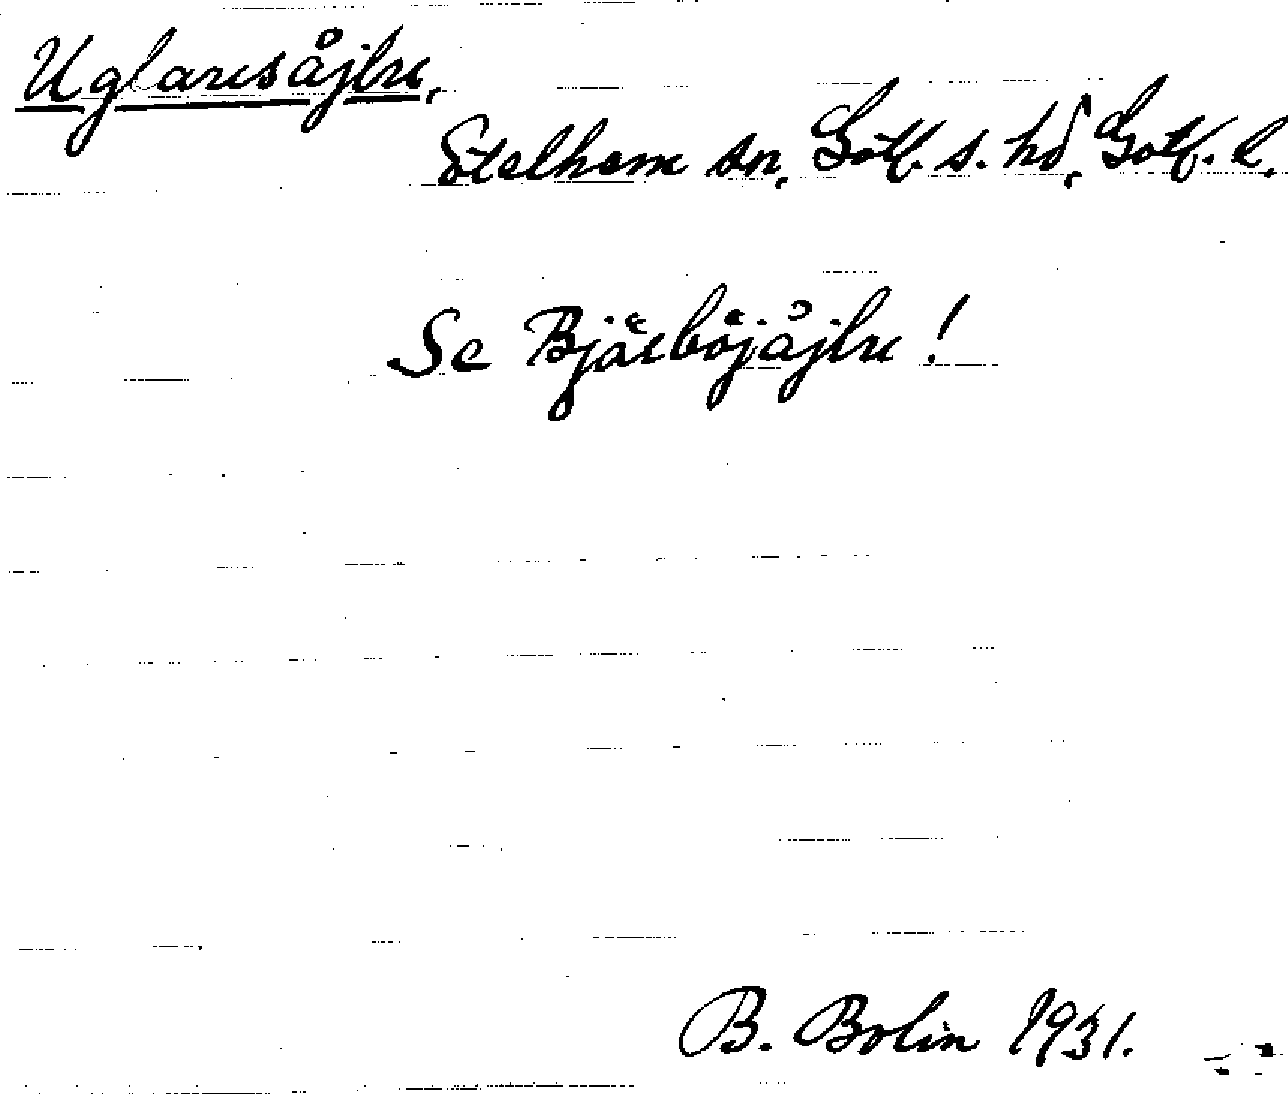 Uglaresåjlre,
Etelhem sn, Gotl. s. hd, Gotl. l.
Se Bjärböjåjlre!
B. Bolin 1931.